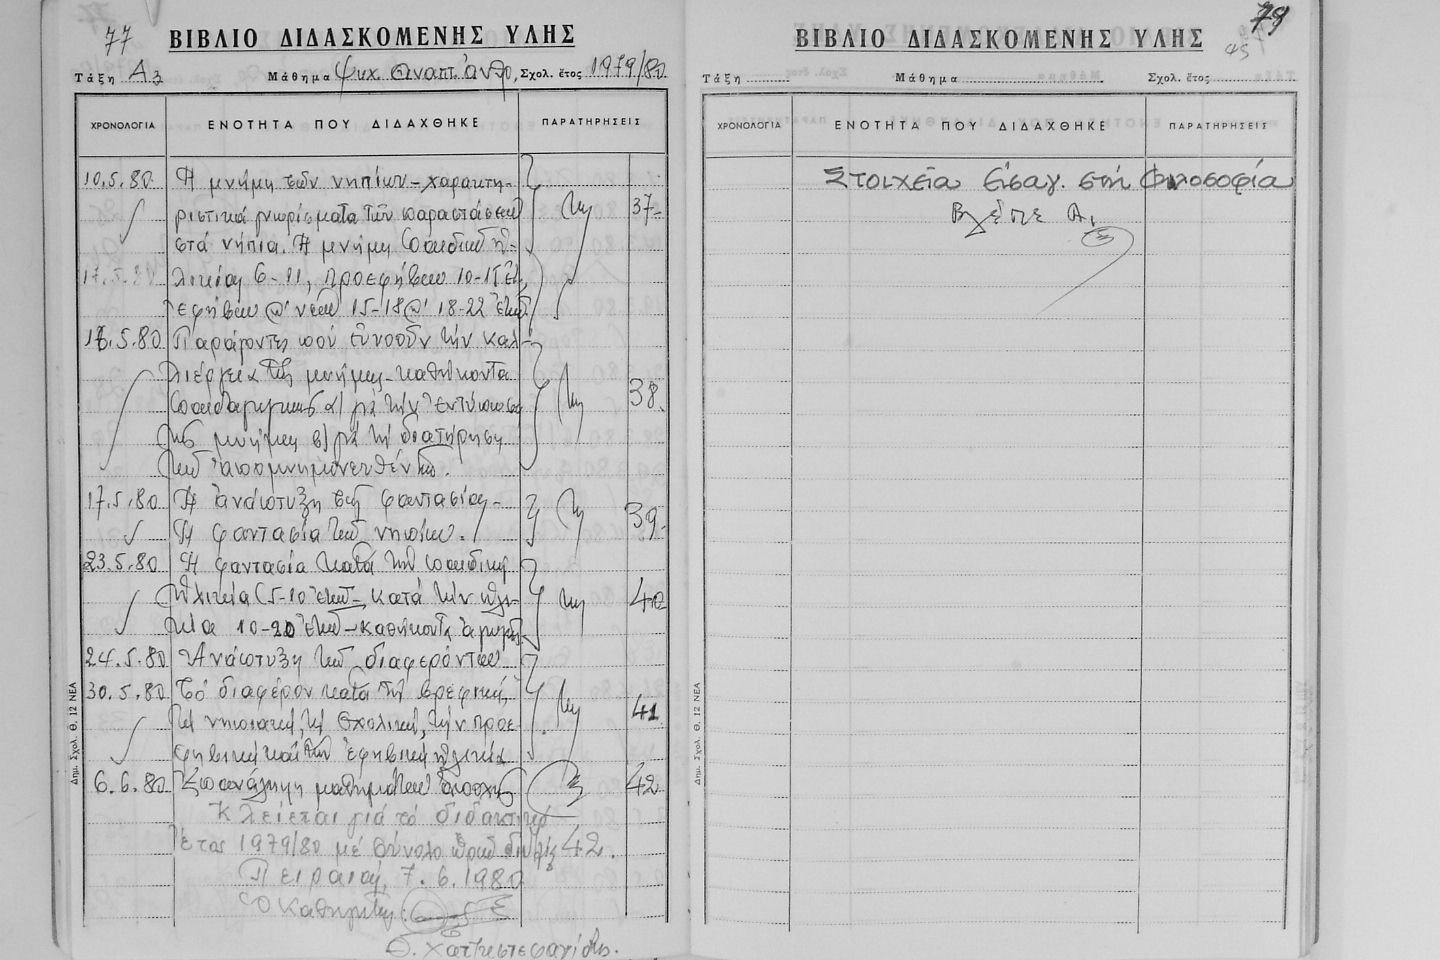 77
ΒΙΒΛΙΟ ΔΙΔΑΣΚΟΜΕΝΗΣ ΥΛΗΣ
Τάξη Α3 Μάθημα Ψυχ. Αναπτ. Ανθρ. Σχολ. ἔτος 1979/80
ΧΡΟΝΟΛΟΓΙΑ ΕΝΟΤΗΤΑ ΠΟΥ ΔΙΔΑΧΘΗΚΕ ΠΑΡΑΤΗΡΗΣΕΙΣ
10.5.80 Ἡ μνήμη τῶν νηπίων - χαρακτη-
ριστικά γνωρίσματα τῶν παραστάσεων 37
στά νήπια. Ἡ μνήμη παιδικῆς ἡ-
λικίας 6-11, προεφήβων 10-15 ἐτῶν,
ἐφήβων 15-18 18-22 ἐτῶν
16.5.80 Παράγοντες πού εὐνοοῦν τήν καλ-
λιέργεια τῆς μνήμης - καθήκοντα 38.
παιδαγωγικῆς α) γιά τήν ἐντύπωση
τῆς μνήμης β) γιά τή διατήρηση
τῶν ἀπομνημονευθέντων.
17.5.80 Ἡ ἀνάπτυξη τῆς φαντασίας - 39.
Ἡ φαντασία τῶν νηπίων.
23.5.80 Ἡ φαντασία κατά τήν παιδική
ἡλικία (5-10 ἐτῶν - κατά τήν ἡλι- 40
κία 10-20 ἐτῶν - καθήκοντα ἀγωγῆς
24.5.80 Ἀνάπτυξη τῶν διαφερόντων
30.5.80 Τό διαφέρον κατά τή βρεφική, 41
τή νηπιακή, τή σχολική, τήν προε-
φηβική καί τήν ἐφηβική ἡλικία
6.6.80 Ἐπανάληψη μαθημάτων 42
Κλείεται γιά τό διδακτικό
ἔτος 1979/80 μέ σύνολο ὡρῶν 42.
Πειραιάς, 7.6.1980
Ὁ Καθηγητής
Θ. Χατζηστεφανίδης.
Δημ. Σχολ. Θ. 12 ΝΕΑ
79
ΒΙΒΛΙΟ ΔΙΔΑΣΚΟΜΕΝΗΣ ΥΛΗΣ
Τάξη Μάθημα Σχολ. ἔτος
ΧΡΟΝΟΛΟΓΙΑ ΕΝΟΤΗΤΑ ΠΟΥ ΔΙΔΑΧΘΗΚΕ ΠΑΡΑΤΗΡΗΣΕΙΣ
Στοιχεῖα Εἰσαγ. στή Φιλοσοφία
Βλέπε Α1
Δημ. Σχολ. Θ. 12 ΝΕΑ